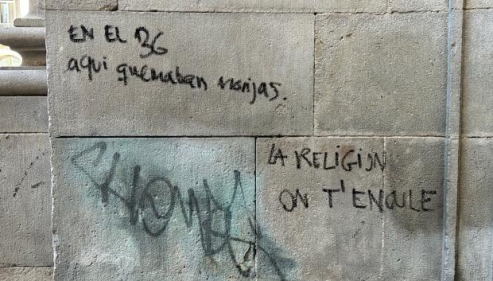 EN EL 36
aqui quemaban monjas.
LA RELIGION
ON T'ENCULE